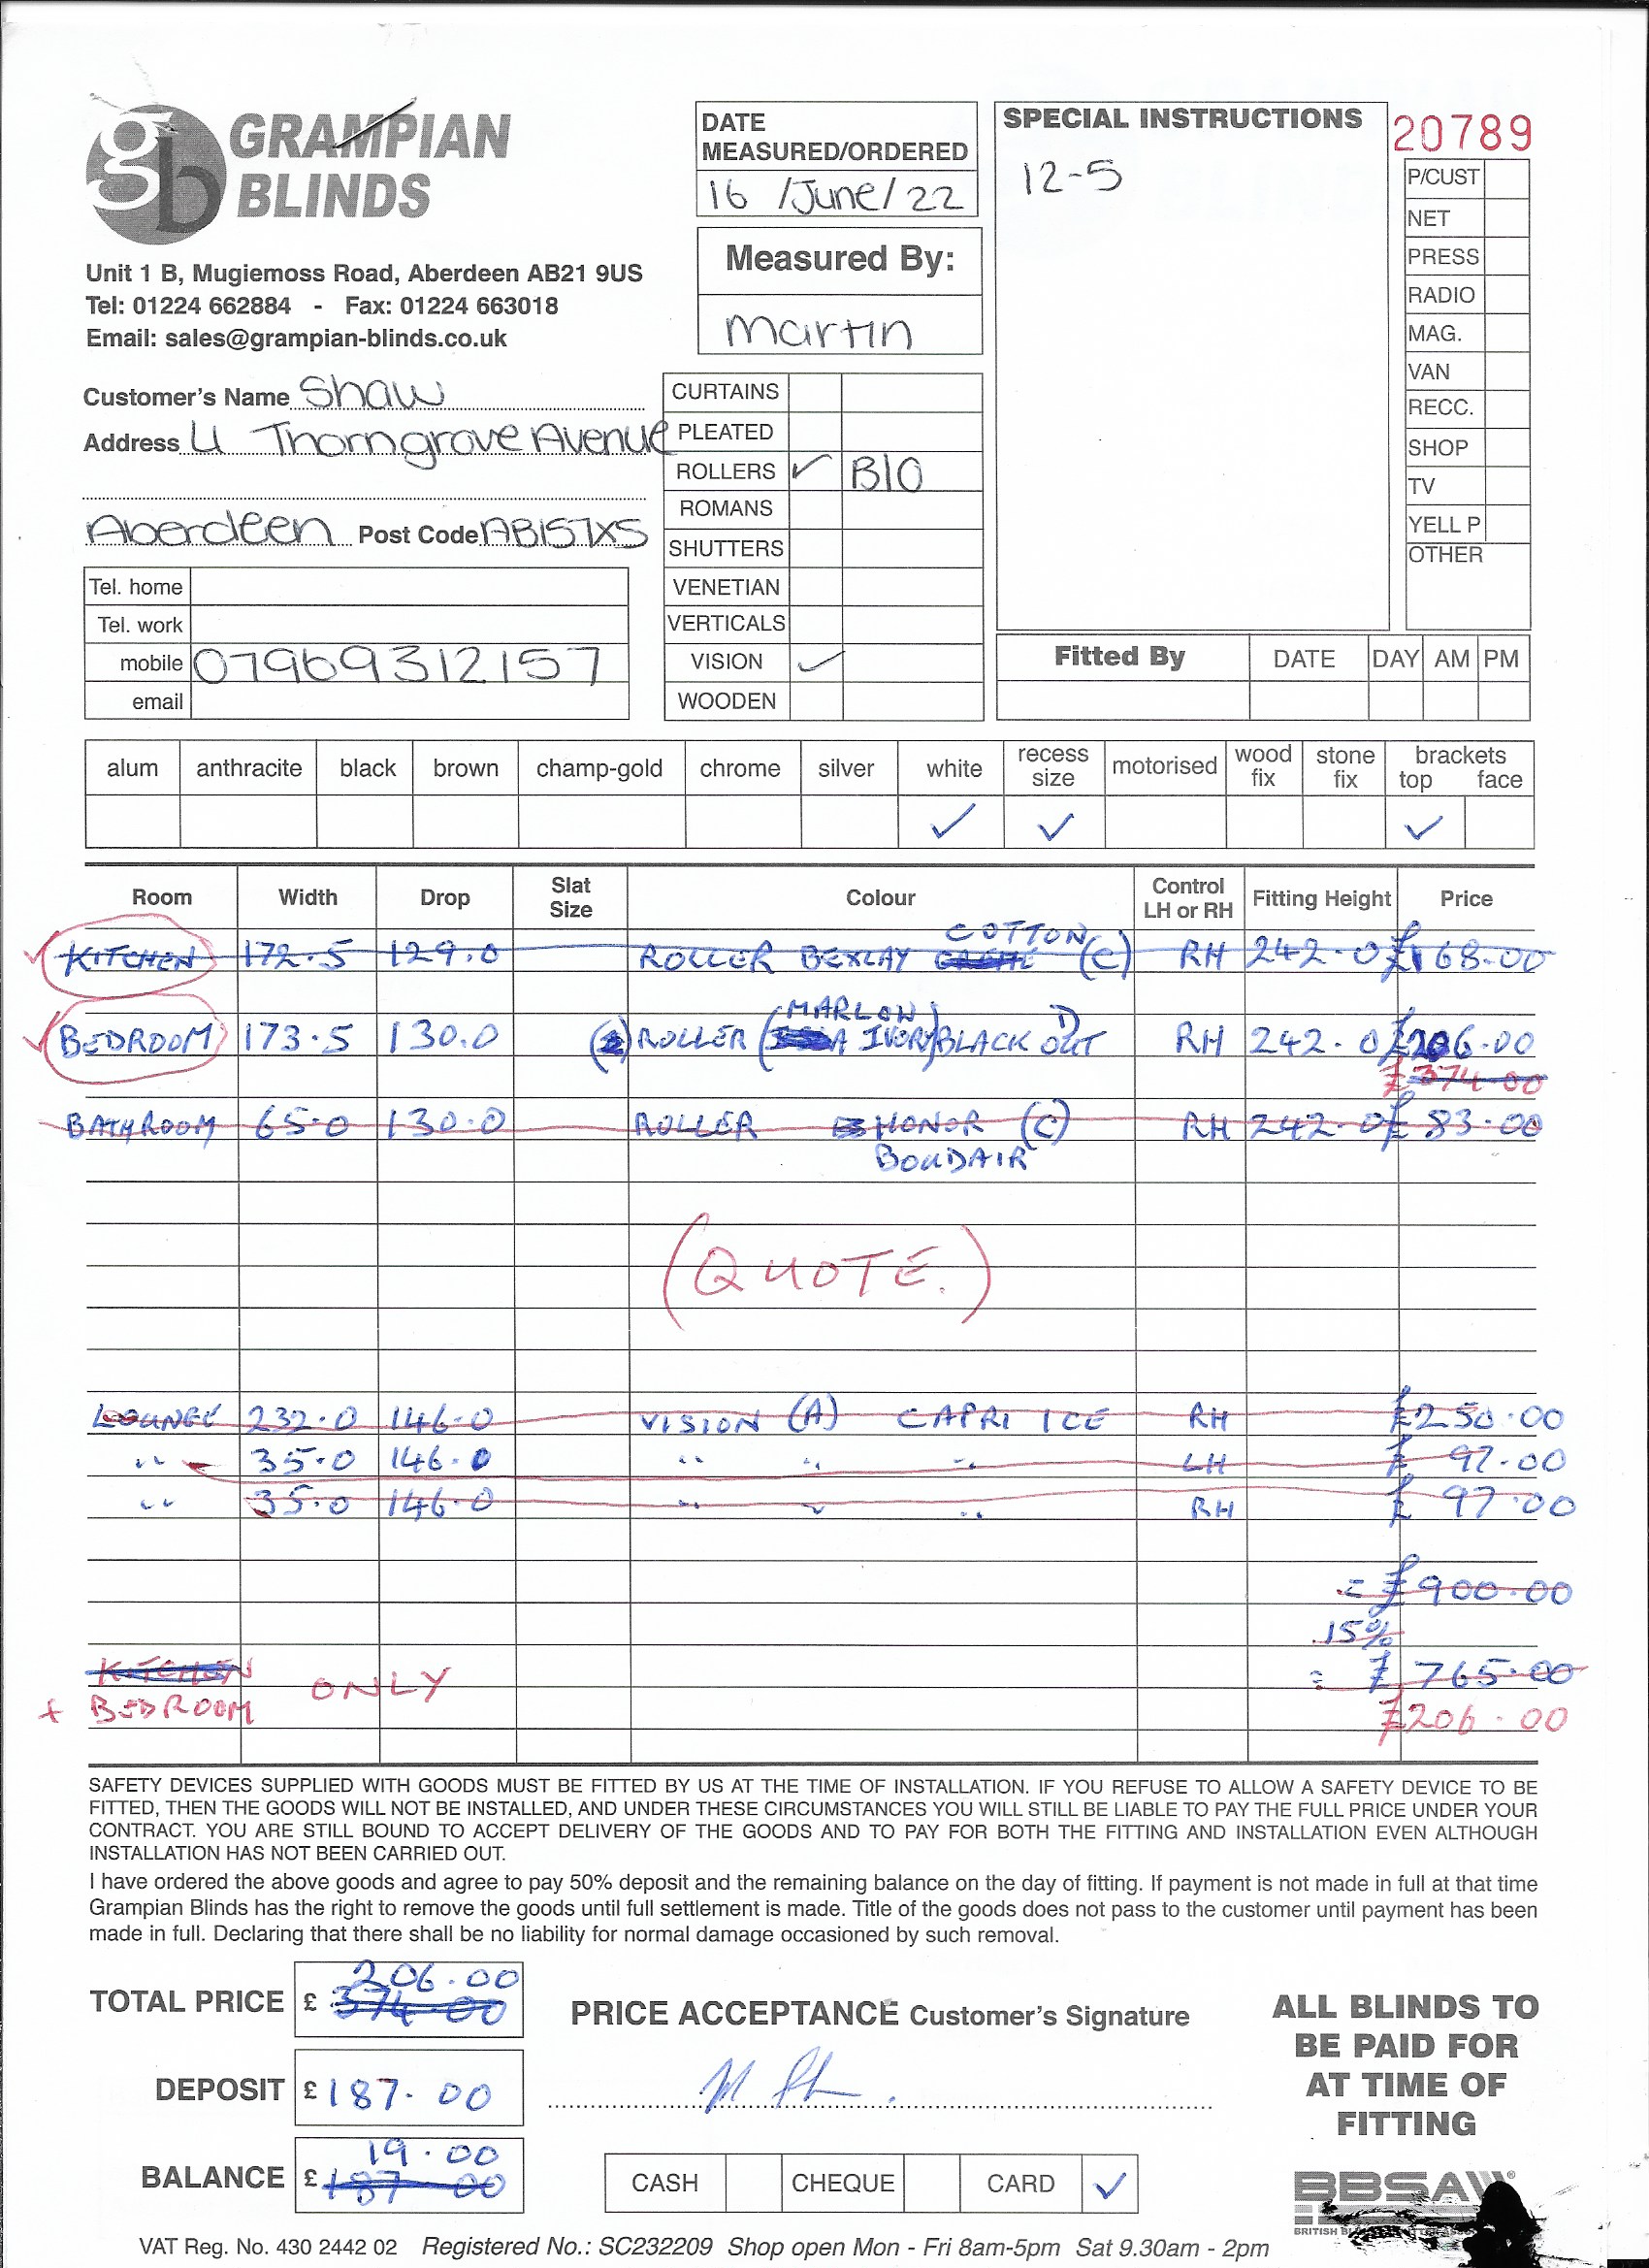 gb GRAMPIAN BLINDS
Unit 1 B, Mugiemoss Road, Aberdeen AB21 9US
Tel: 01224 662884 - Fax: 01224 663018
Email: sales@grampian-blinds.co.uk
DATE
MEASURED/ORDERED
16 /June/22
Measured By:
Martin
SPECIAL INSTRUCTIONS
12-5
20789
P/CUST
NET
PRESS
RADIO
MAG.
VAN
RECC.
SHOP
TV
YELL P
OTHER
Customer's Name Shaw
Address 4 Thorngrove Avenue
Aberdeen Post Code AB157XS
Tel. home
Tel. work
mobile 07969312157
email
CURTAINS
PLEATED
ROLLERS ✓ B10
ROMANS
SHUTTERS
VENETIAN
VERTICALS
VISION ✓
WOODEN
Fitted By DATE DAY AM PM
alum anthracite black brown champ-gold chrome silver white recess size motorised wood fix stone fix brackets top face
✓ ✓ ✓
Room Width Drop Slat Size Colour Control LH or RH Fitting Height Price
COTTON
KITCHEN 172.5 129.0 ROLLER BEXLAY (C) RH 242.0 £168.00
MARLOW
BEDROOM 173.5 130.0 ROLLER IVORY BLACK OUT RH 242.0 £206.00
£374.00
BATHROOM 65.0 130.0 ROLLER HONOR (C) RH 242.0 £83.00
BOUDAIR
(QUOTE.)
LOUNGE 232.0 146.0 VISION (A) CAPRI ICE RH £250.00
" 35.0 146.0 " " " LH £97.00
" 35.0 146.0 " " " RH £97.00
= £900.00
15%
= £765.00
KITCHEN
+ BEDROOM ONLY
£206.00
SAFETY DEVICES SUPPLIED WITH GOODS MUST BE FITTED BY US AT THE TIME OF INSTALLATION. IF YOU REFUSE TO ALLOW A SAFETY DEVICE TO BE
FITTED, THEN THE GOODS WILL NOT BE INSTALLED, AND UNDER THESE CIRCUMSTANCES YOU WILL STILL BE LIABLE TO PAY THE FULL PRICE UNDER YOUR
CONTRACT. YOU ARE STILL BOUND TO ACCEPT DELIVERY OF THE GOODS AND TO PAY FOR BOTH THE FITTING AND INSTALLATION EVEN ALTHOUGH
INSTALLATION HAS NOT BEEN CARRIED OUT.
I have ordered the above goods and agree to pay 50% deposit and the remaining balance on the day of fitting. If payment is not made in full at that time
Grampian Blinds has the right to remove the goods until full settlement is made. Title of the goods does not pass to the customer until payment has been
made in full. Declaring that there shall be no liability for normal damage occasioned by such removal.
206.00
TOTAL PRICE £ 374.00
DEPOSIT £187.00
19.00
BALANCE £187.00
PRICE ACCEPTANCE Customer's Signature
CASH CHEQUE CARD ✓
ALL BLINDS TO
BE PAID FOR
AT TIME OF
FITTING
BBSA
BRITISH
VAT Reg. No. 430 2442 02 Registered No.: SC232209 Shop open Mon - Fri 8am-5pm Sat 9.30am - 2pm